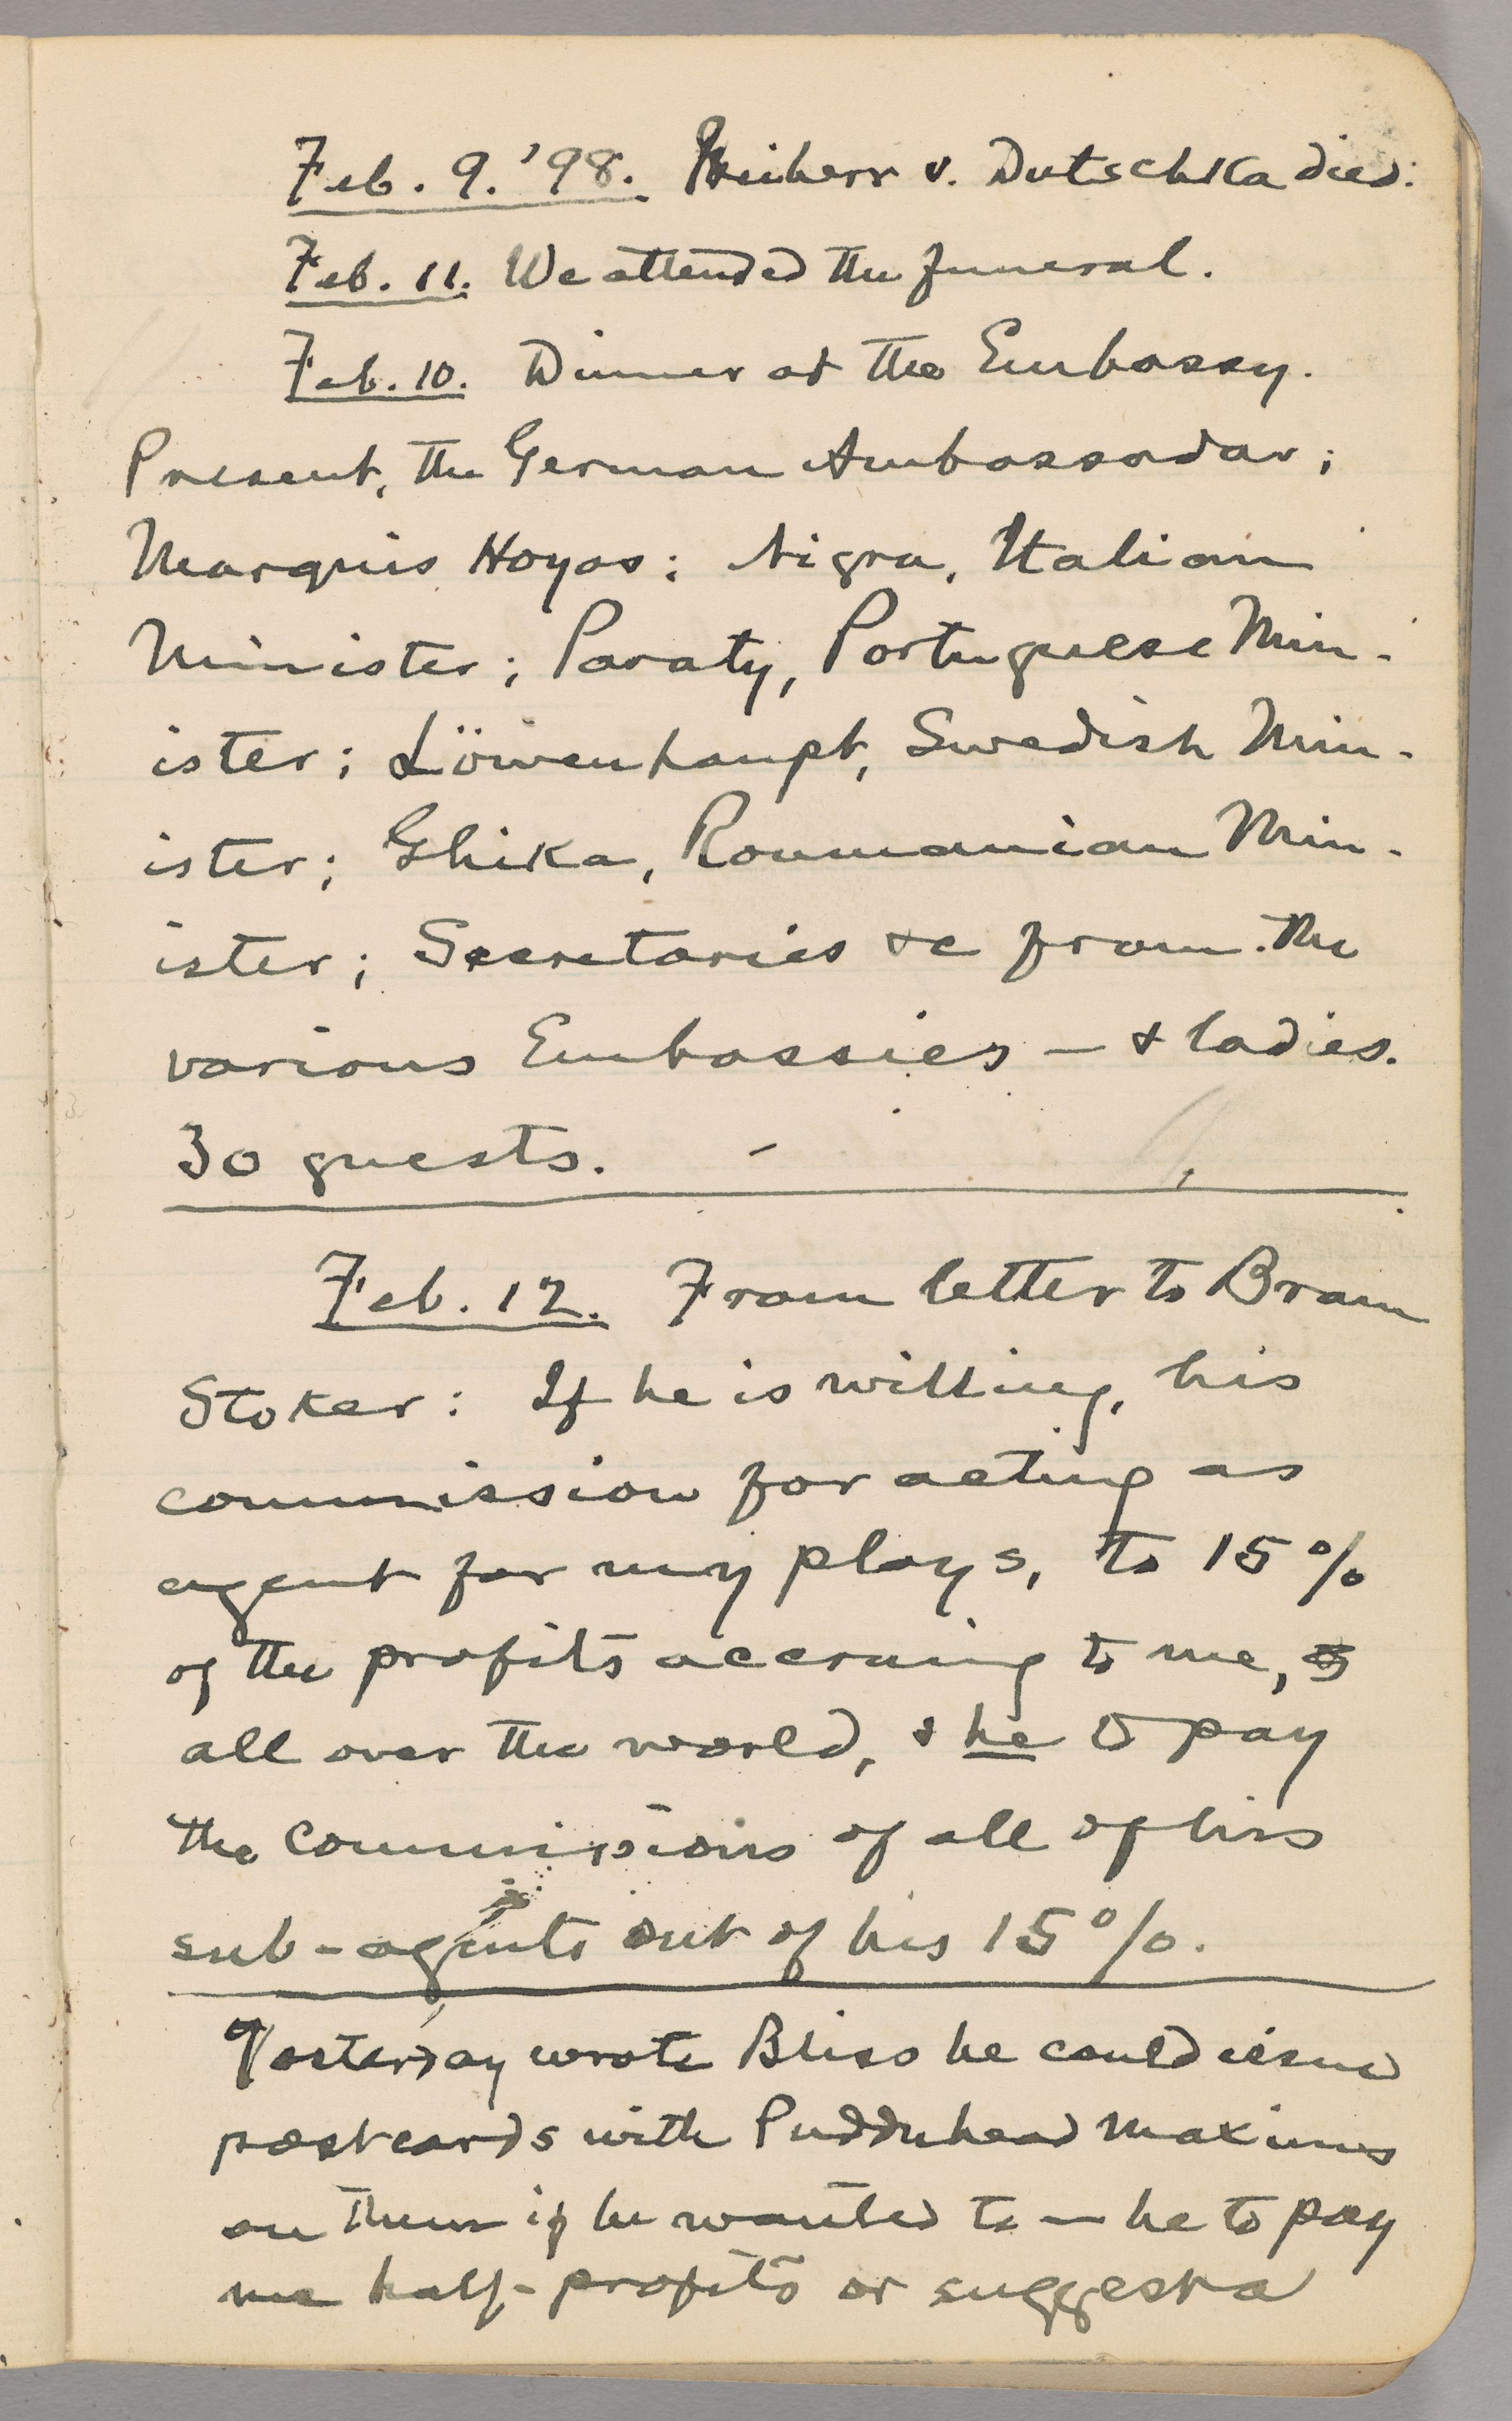 Feb. 9. '98. Freiherr v. Dutschka died.
Feb. 11. We attended the funeral.
Feb. 10. Dinner at the Embassy.
Present, the German Ambassador;
Marquis Hoyos; Nigra, Italian
Minister; Paraty, Portuguese Min-
ister; Löwenhaupt, Swedish Min-
ister; Ghika, Roumanian Min-
ister; Secretaries &c from the
various Embassies — & ladies.
30 guests.
Feb. 12. From letter to Bram
Stoker: If he is willing, his
commission for acting as
agent for my plays, to 15%
of the profits accruing to me,
all over the world, & he to pay
the commissions of all of his
sub-agents out of his 15%.
Yesterday wrote Bliss he could issue
postcards with Puddnhead maxims
on them if he wanted to — he to pay
me half-profits or suggest a